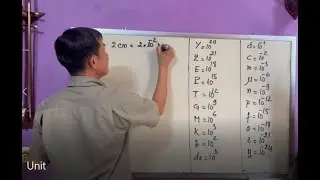 2 cm = 2 × 10⁻²
Y = 10²⁰
Z = 10²¹
E = 10¹⁸
P = 10¹⁵
T = 10¹²
G = 10⁹
M = 10⁶
K = 10³
h = 10²
da = 10
d = 10⁻¹
c = 10⁻²
m = 10⁻³
μ = 10⁻⁶
n = 10⁻⁹
p = 10⁻¹²
f = 10⁻¹⁵
a = 10⁻¹⁸
z = 10⁻²¹
y = 10⁻²⁴
Unit